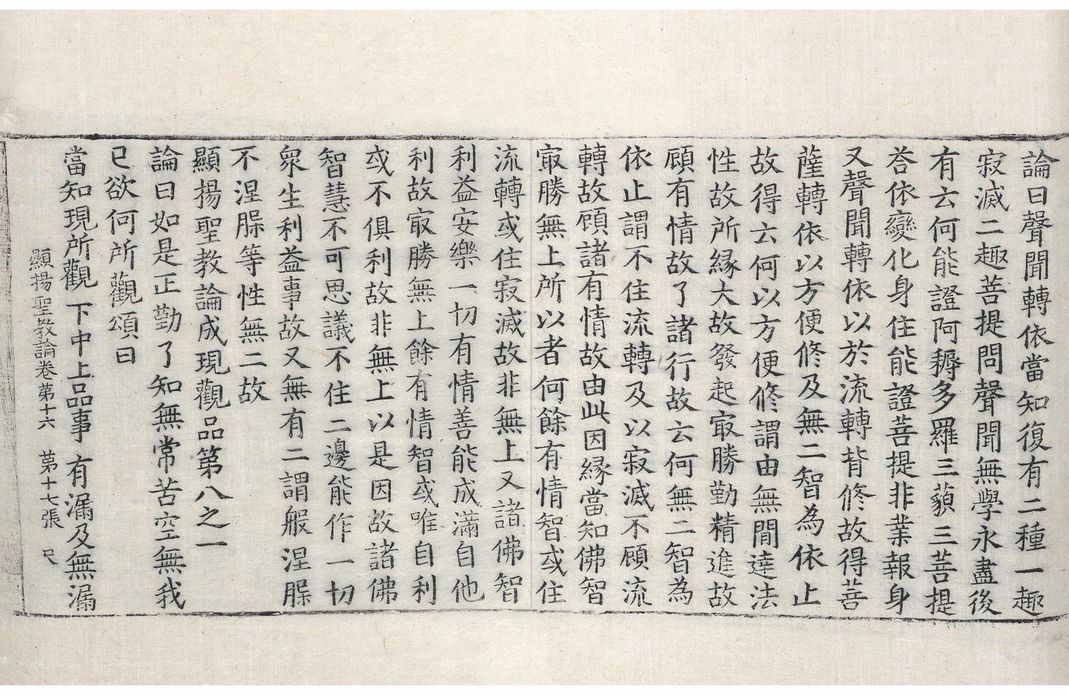 論曰聲聞轉依當知復有二種一趣
寂滅二趣菩提問聲聞無學永盡後
有云何能證阿耨多羅三藐三菩提
荅依變化身住能證菩提非業報身
又聲聞轉依以於流轉背修故得菩
薩轉依以方便修及無二智為依止
故得云何以方便修謂由無間達法
性故所緣大故發起㝡勝勤精進故
顧有情故了諸行故云何無二智為
依止謂不住流轉及以寂滅不顧流
轉故顧諸有情故由此因緣當知佛智
㝡勝無上所以者何餘有情智或住
流轉或住寂滅故非無上又諸佛智
利益安樂一切有情善能成滿自他
利故㝡勝無上餘有情智或唯自利
或不俱利故非無上以是因故諸佛
智慧不可思議不住二邊能作一切
眾生利益事故又無有二謂般涅槃
不涅槃等性無二故
顯揚聖教論成現觀品第八之一
論曰如是正勤了知無常苦空無我
已欲何所觀頌曰
當知現所觀 下中上品事 有漏及無漏
顯揚聖教論卷第十六 第十七張